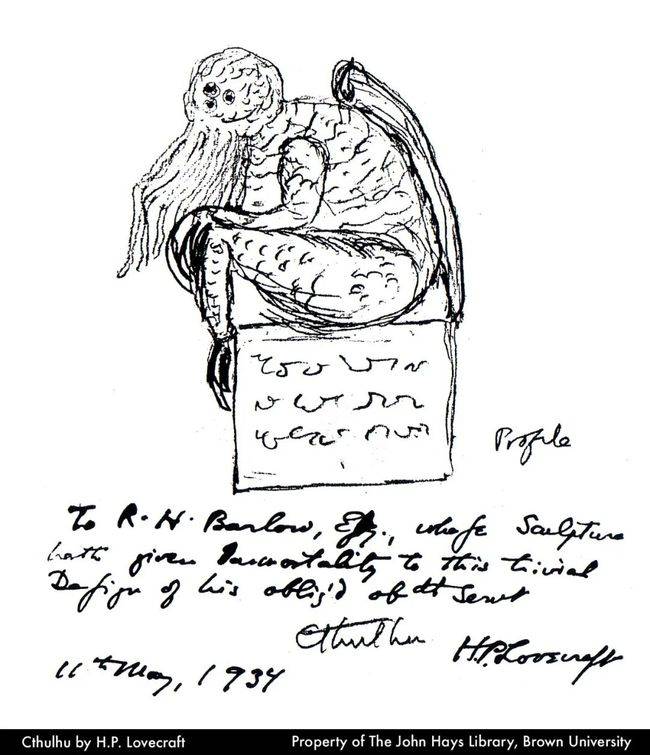 Profile
To R. H. Barlow, Esq., whose Sculpture
hath given Immortality to this trivial
Design of his oblig'd obdt Servt
Cthulhu
H.P. Lovecraft
11th May, 1934
Cthulhu by H.P. Lovecraft
Property of The John Hays Library, Brown University